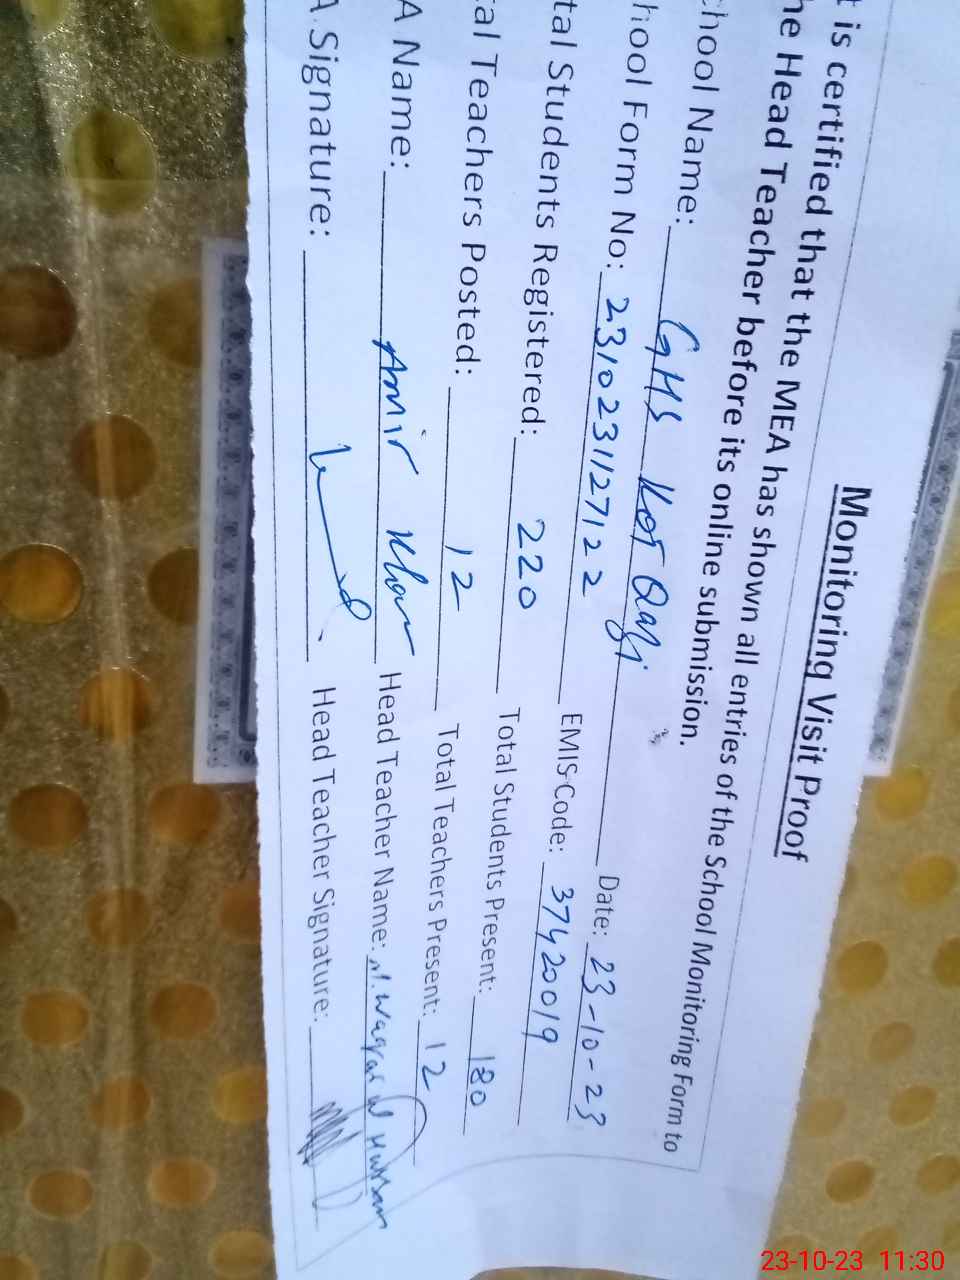 Monitoring Visit Proof
t is certified that the MEA has shown all entries of the School Monitoring Form to
he Head Teacher before its online submission.
chool Name: GHS Kot Qazi Date: 23-10-23
hool Form No: 23102311271 22 EMIS Code: 37420019
tal Students Registered: 220 Total Students Present: 180
tal Teachers Posted: 12 Total Teachers Present: 12
A Name: Amir Khan Head Teacher Name: M. Waqar ul Hassan
A Signature: Head Teacher Signature:
23-10-23 11:30